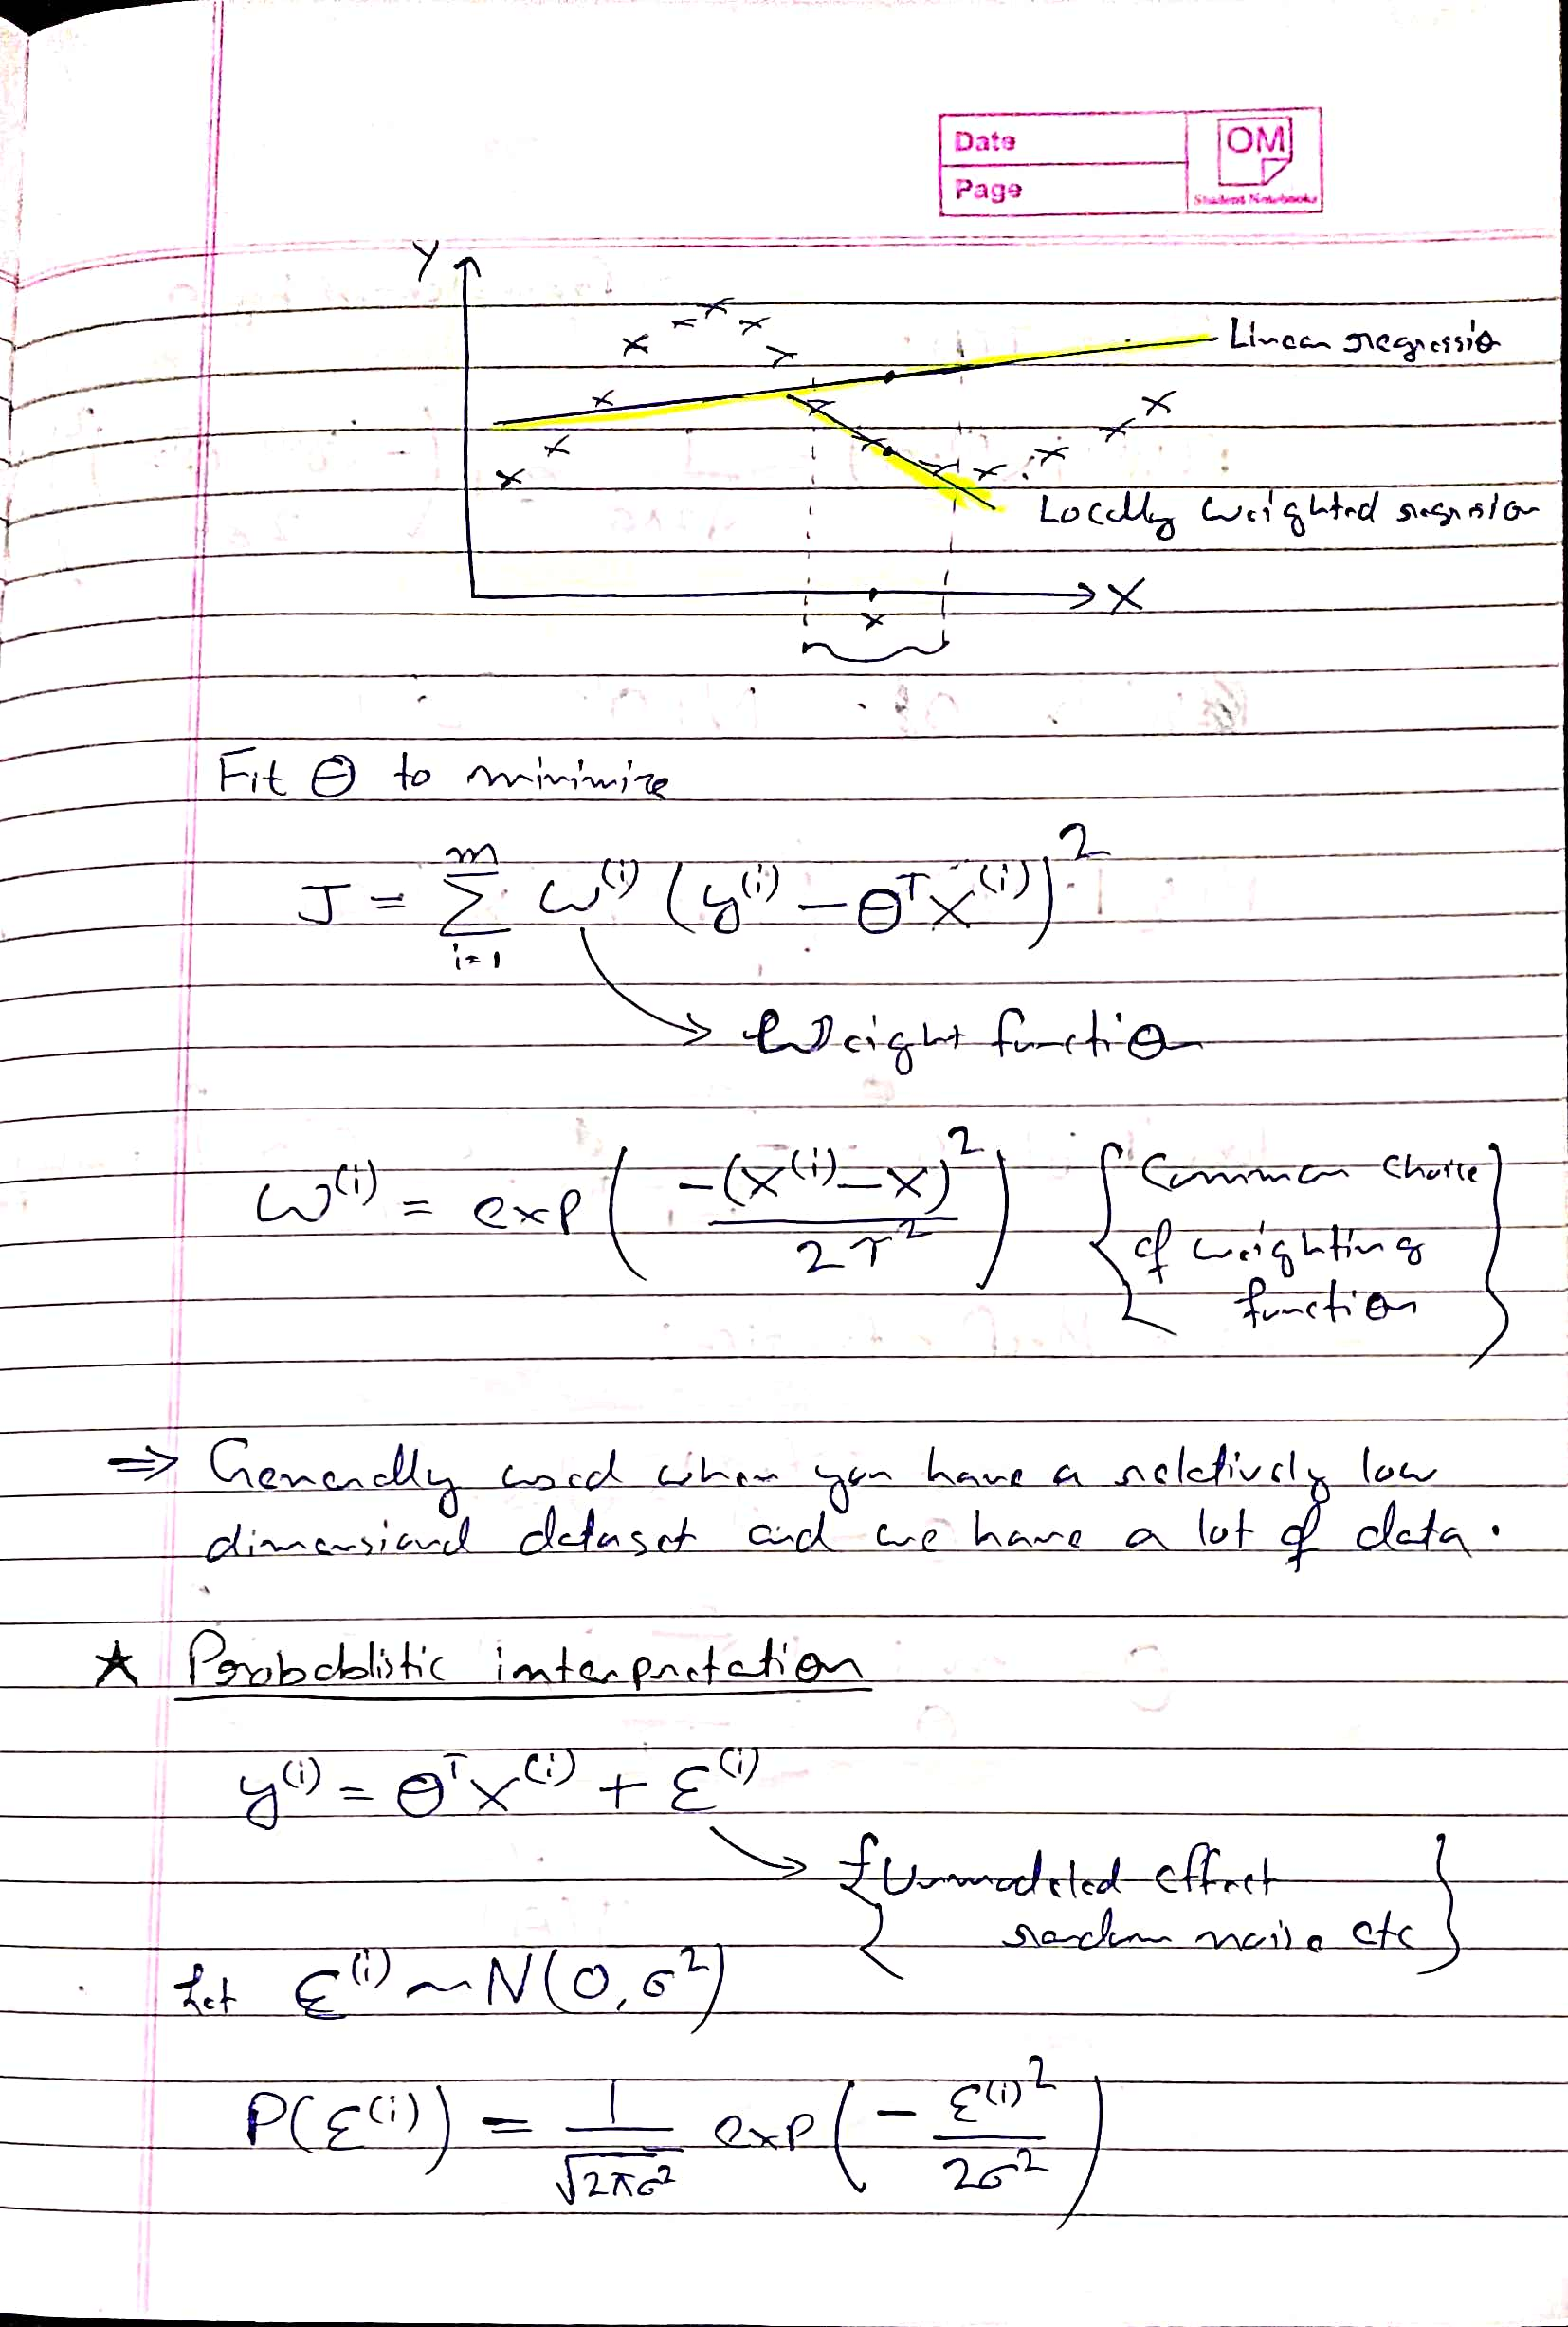 Date
Page
OM
Student Notebooks
Y
Linear regression
Locally weighted regression
X
x
Fit θ to minimize
J = Σ_{i=1}^{m} ω^(i) (y^(i) – θ^T x^(i))^2
→ Weight function
ω^(i) = exp ( -(x^(i) – x)^2 / 2τ^2 ) { Common choice
of weighting
function }
⇒ Generally used when you have a relatively low
dimensional dataset and we have a lot of data.
★ Probablistic interpretation
y^(i) = θ^T x^(i) + ε^(i)
→ { Unmodeled effect
random noise etc }
Let ε^(i) ~ N(0, σ^2)
P(ε^(i)) = 1/√(2πσ^2) exp ( – ε^(i)^2 / 2σ^2 )